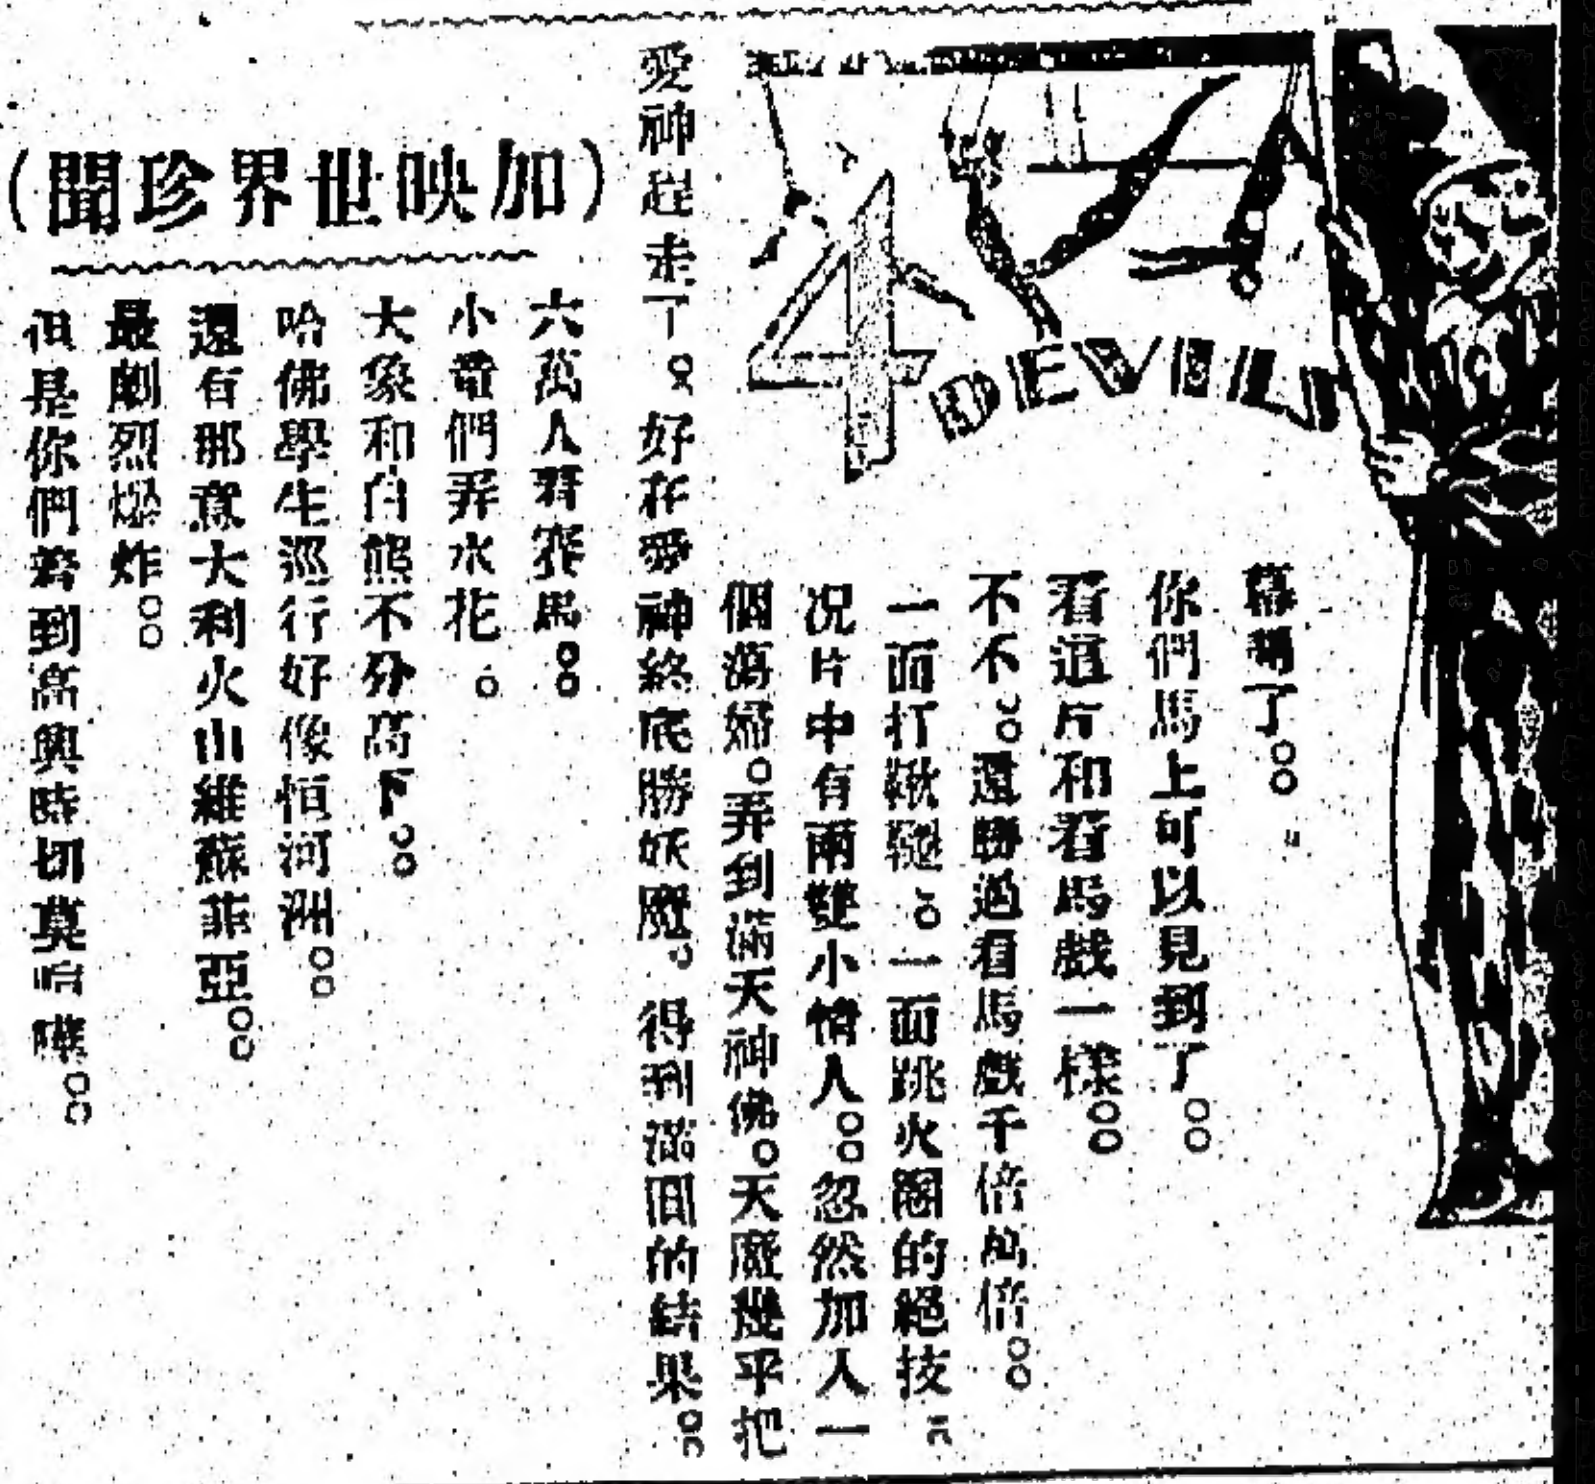 4 DEVILS
幕開了。。
你們馬上可以見到了。。
看這片和看馬戲一樣。。
不不。。還勝過看馬戲千倍萬倍。。
一面打鞦韆。。一面跳火圈的絕技。。
况片中有兩雙小情人。。忽然加人一
個蕩婦。弄到滿天神佛。天魔幾乎把
愛神趕走了。。好在愛神終底勝妖魔。。得到滿圓的結果。。
(加映世界珍聞)
六萬人看賽馬。。
小童們弄水花。。
大象和白熊不分高下。。
哈佛學生巡行好像恒河洲。。
還有那意大利火山維蘇菲亞。。
最劇烈爆炸。。
但是你們看到高興時切莫嘩。。